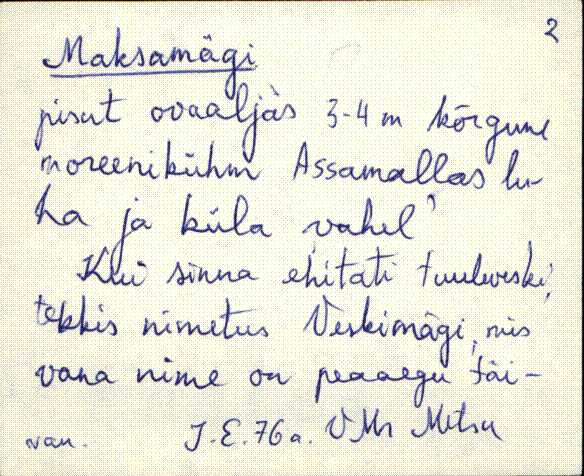 2
Maksamägi
pisut ovaaljas 3-4 m kõrgune
moreenikühm Assamallas lu-
ha ja küla vahel
Kui sinna ehitati tuuleveski,
tekkis nimetus Veskimägi, mis
vana nime on peaaegu täi-
van. J.E. 76 a. VMr Metsa